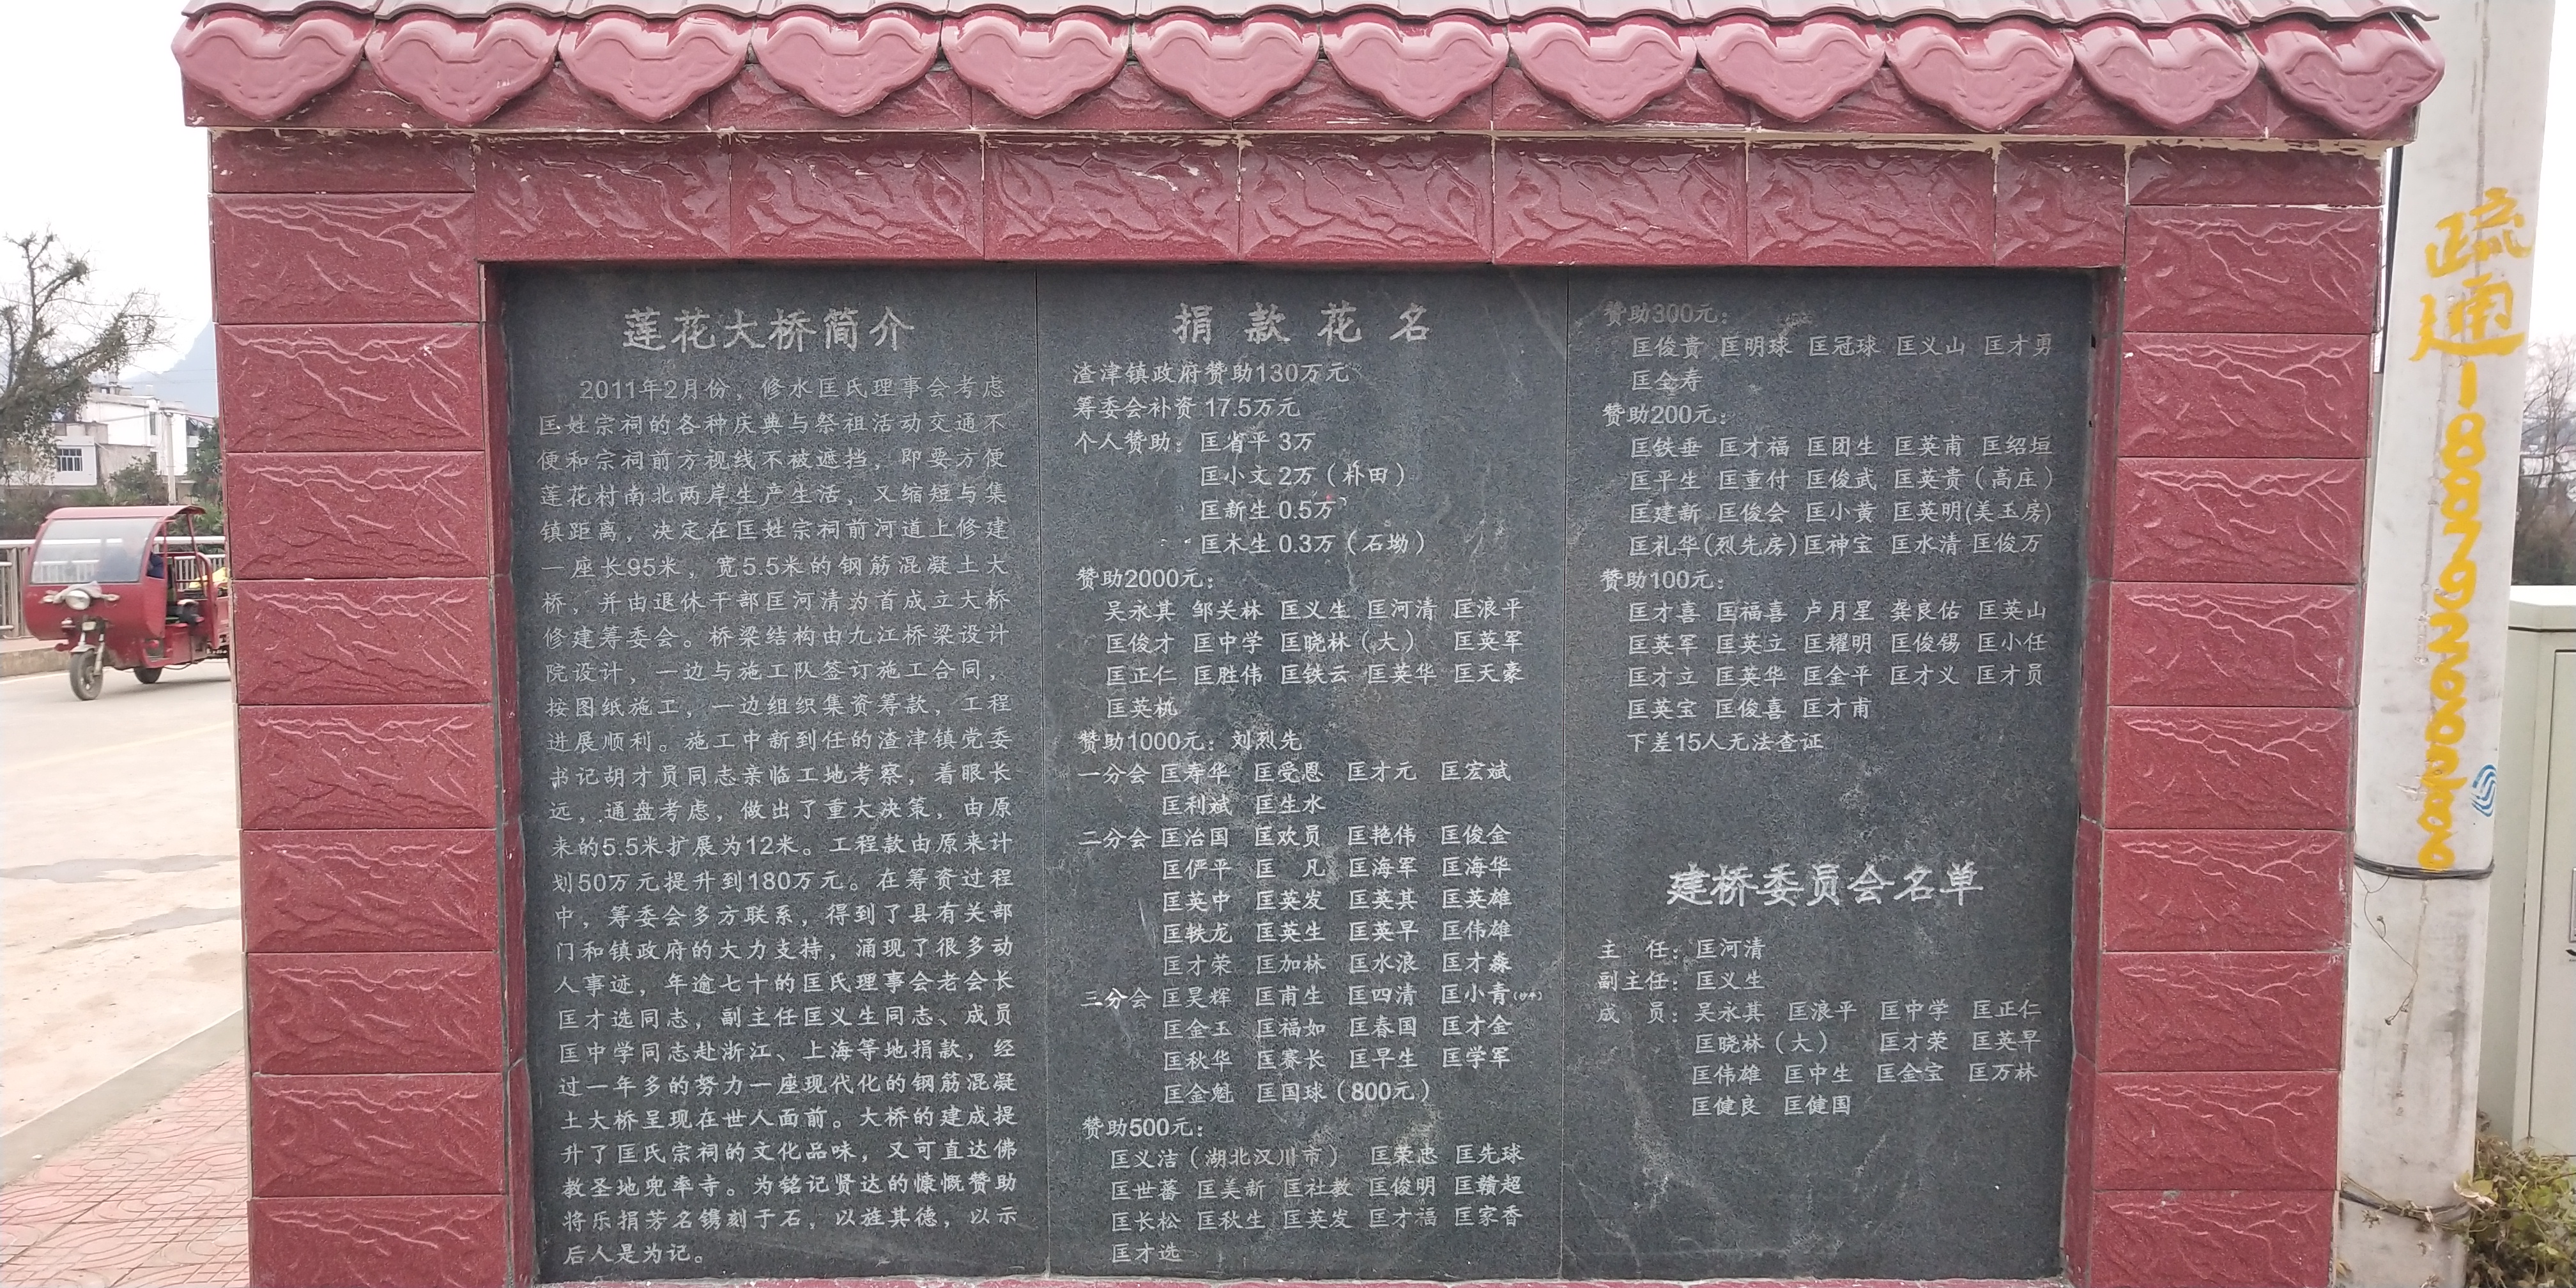 莲花大桥简介
2011年2月份，修水匡氏理事会考虑
匡姓宗祠的各种庆典与祭祖活动交通不
便和宗祠前方视线不被遮挡，即要方便
莲花村南北两岸生产生活，又缩短与集
镇距离，决定在匡姓宗祠前河道上修建
一座长95米，宽5.5米的钢筋混凝土大
桥，并由退休干部匡河清为首成立大桥
修建筹委会。桥梁结构由九江桥梁设计
院设计，一边与施工队签订施工合同，
按图纸施工，一边组织集资筹款，工程
进展顺利。施工中新到任的渣津镇党委
书记胡才员同志亲临工地考察，着眼长
远，通盘考虑，做出了重大决策，由原
来的5.5米扩展为12米。工程款由原来计
划50万元提升到180万元。在筹资过程
中，筹委会多方联系，得到了县有关部
门和镇政府的大力支持，涌现了很多动
人事迹，年逾七十的匡氏理事会老会长
匡才选同志，副主任匡义生同志、成员
匡中学同志赴浙江、上海等地捐款，经
过一年多的努力一座现代化的钢筋混凝
土大桥呈现在世人面前。大桥的建成提
升了匡氏宗祠的文化品味，又可直达佛
教圣地兜率寺。为铭记贤达的慷慨赞助
将乐捐芳名镌刻于石，以旌其德，以示
后人是为记。
捐款花名
渣津镇政府赞助130万元
筹委会补资 17.5万元
个人赞助：匡省平 3万
匡小文 2万（朴田）
匡新生 0.5万
匡木生 0.3万（石坳）
赞助2000元：
吴永其 邹关林 匡义生 匡河清 匡浪平
匡俊才 匡中学 匡晓林（大） 匡英军
匡正仁 匡胜伟 匡铁云 匡英华 匡天豪
匡英桃
赞助1000元：刘烈先
一分会 匡寿华 匡受恩 匡才元 匡宏斌
匡利斌 匡生水
二分会 匡治国 匡欢员 匡艳伟 匡俊金
匡俨平 匡 凡 匡海军 匡海华
匡英中 匡英发 匡英其 匡英雄
匡轶龙 匡英生 匡英早 匡伟雄
匡才荣 匡加林 匡水浪 匡才淼
三分会 匡昊辉 匡甫生 匡四清 匡小青
匡金玉 匡福如 匡春国 匡才金
匡秋华 匡赛长 匡早生 匡学军
匡金魁 匡国球（800元）
赞助500元：
匡义洁（湖北汉川市） 匡荣忠 匡先球
匡世蕃 匡美新 匡社教 匡俊明 匡赣超
匡长松 匡秋生 匡英发 匡才福 匡家香
匡才选
赞助300元：
匡俊贵 匡明球 匡冠球 匡义山 匡才勇
匡全寿
赞助200元：
匡铁垂 匡才福 匡团生 匡英甫 匡绍垣
匡平生 匡重付 匡俊武 匡英贵（高庄）
匡建新 匡俊会 匡小黄 匡英明(美玉房)
匡礼华(烈先房)匡神宝 匡水清 匡俊万
赞助100元：
匡才喜 匡福喜 卢月星 龚良佑 匡英山
匡英军 匡英立 匡耀明 匡俊锡 匡小任
匡才立 匡英华 匡金平 匡才义 匡才员
匡英宝 匡俊喜 匡才甫
下差15人无法查证
建桥委员会名单
主 任：匡河清
副主任：匡义生
成 员：吴永其 匡浪平 匡中学 匡正仁
匡晓林（大） 匡才荣 匡英早
匡伟雄 匡中生 匡金宝 匡万林
匡健良 匡健国
疏通18879266286